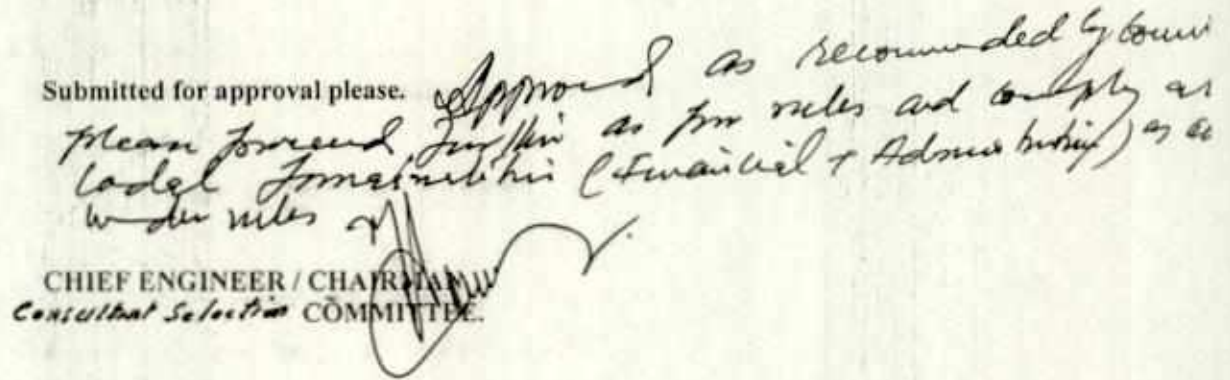 Submitted for approval please.
Approved as recommended by
please proceed further as per rules and comply
codal formalities (Financial + Administrative) as
under rules
CHIEF ENGINEER / CHAIRMAN
Consultant Selection COMMITTEE.